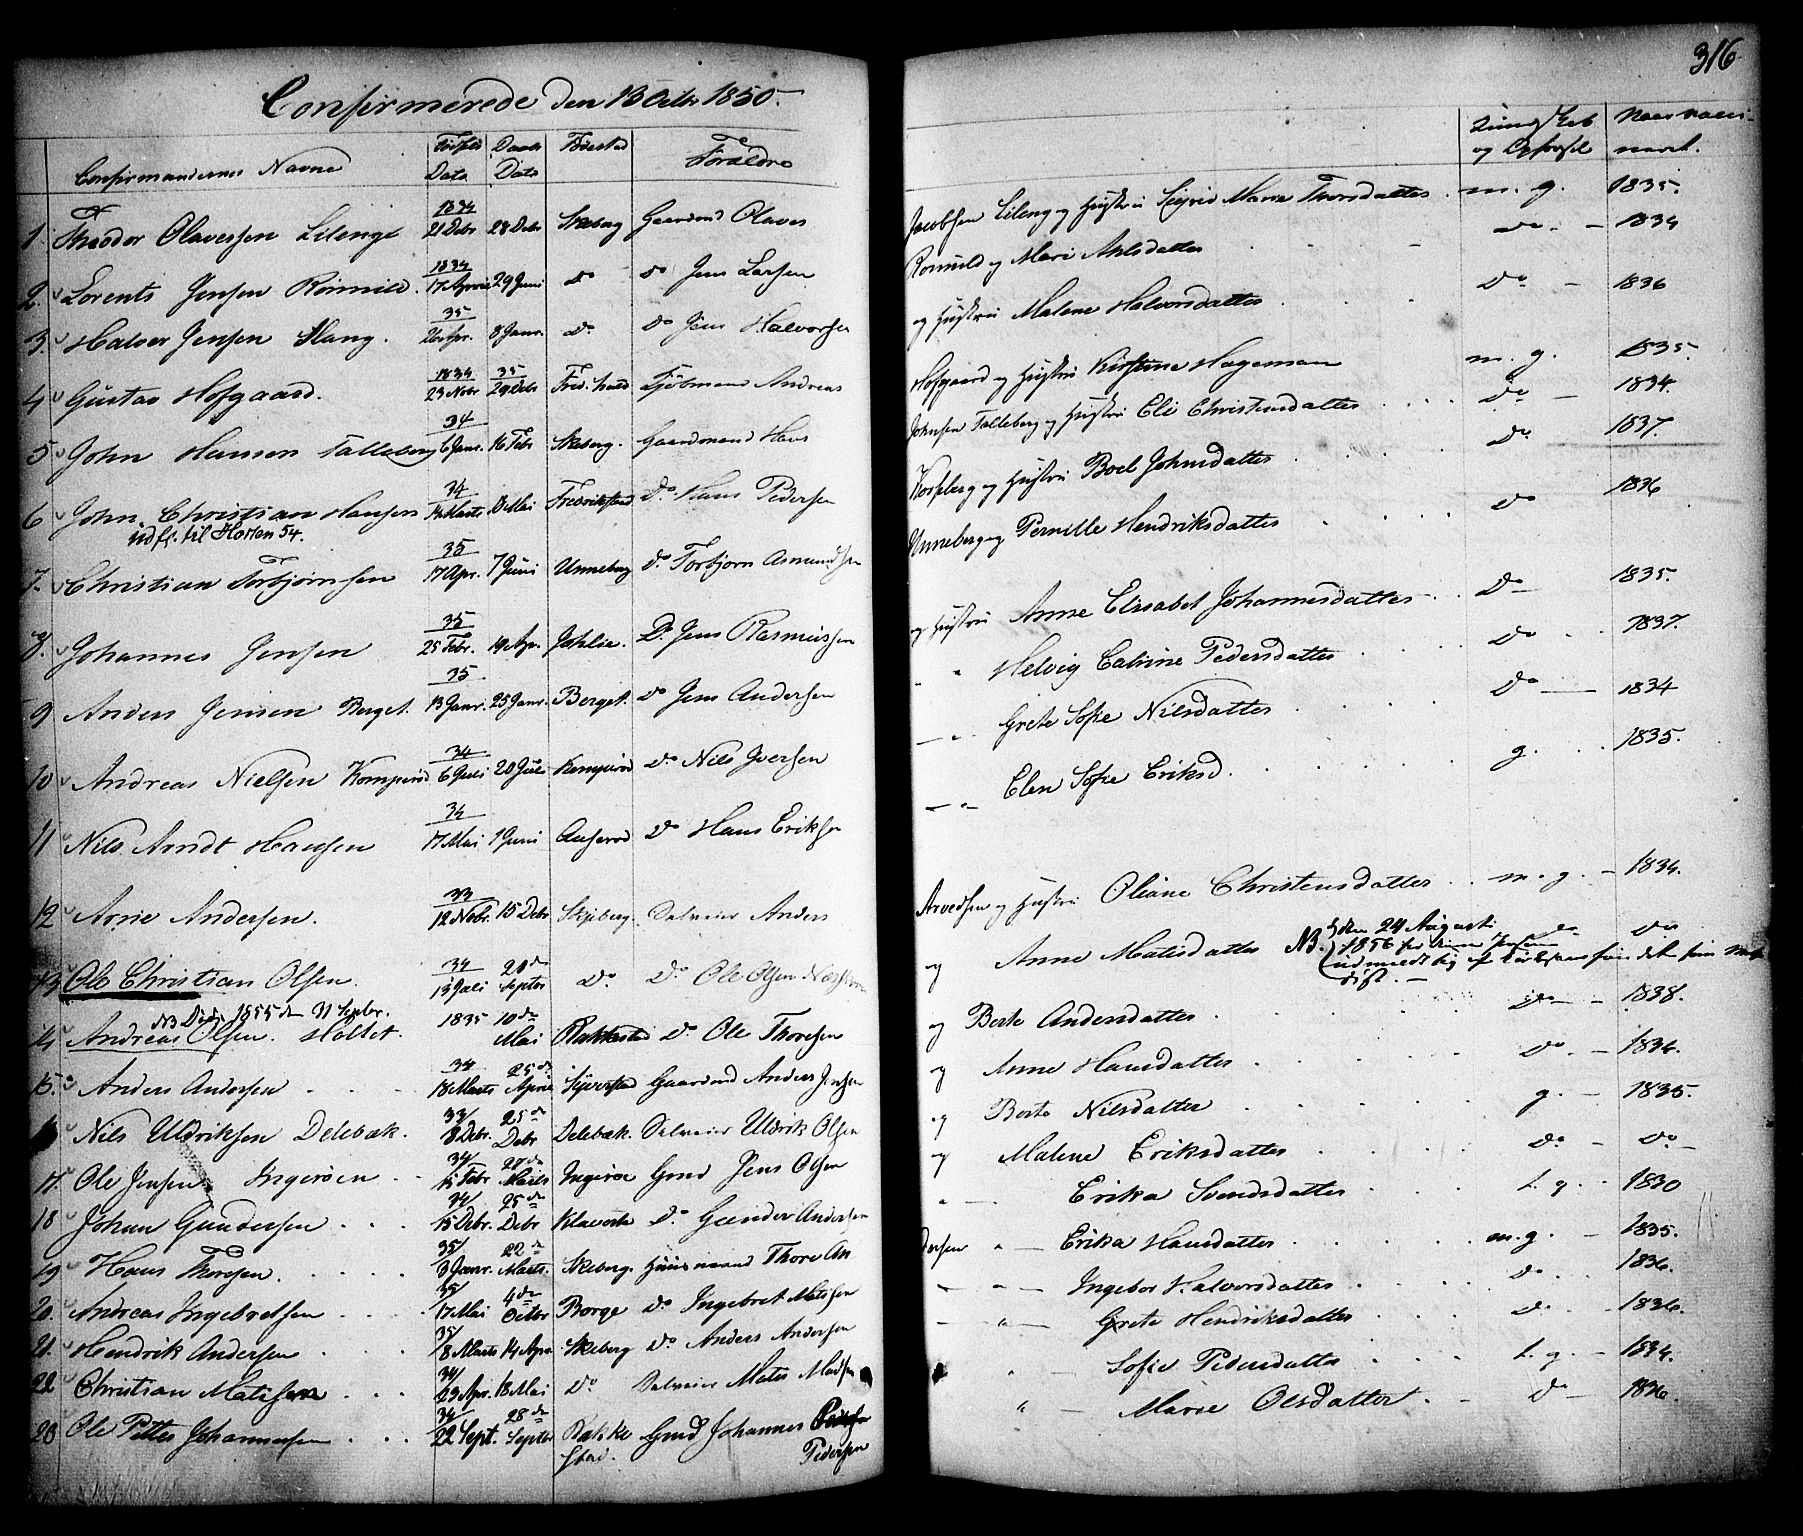 316
Confirmerede den 13 Octbr 1850.
Confirmandernes Navne Fødsels Data Daabs Data Fødested Forældre
og Opførsel Naar vacci-
neret.
1. Theodor Olavessen Lilenge 1834 21 Debr 28 Debr Skeberg Gaardmd Olaves
Jacobsen Lileng og Hustru Sigrid Marie Thorsdatter. m. g. 1835.
2. Lorents Jensen Rømuld. 1834 17 April 29 Juni do do Jens Larsen
Rømuld og Mari Ahlsdatter do - 1834
3. Halvor Jensen Slang. 35 26 Apr. 8 Janr. do do Jens Halvorsen
og Hustru Malene Halvorsdatter do - 1836
4 Gustav Hofgaard. 1834 23 Nobr 35 29 Debr Fred.hald Kjøbmand Andreas
Hofgaard og Hustru Kirstine Hageman m. g. 1835.
5 John Hansen Talleberg 34 6 Janr. 16 Febr Skeberg. Gaardmand Hans
Johnsen Talleberg og Hustru Eli Christensdatter do - 1834.
6 John Christian Hansen 34 14 Marts 13 Mai Fredrikstad do Hans Pedersen
Udfl. til Horten 54.
og Hustru Boel Johnsdatter do 1837.
7. Christian Torbjørnsen 35 17 Apr. 7 Juni Unneberg do Torbjørn Asmundsen
Unneberg og Pernille Hendriksdatter do 1836
8. Johannes Jensen 35 25 Febr. 19 Apr. Do Jens Rasmussen
og Hustru Anne Elisabet Johannesdatter do - 1835.
9 Anders Jensen Berget. 35 13 Janr. 25 Janr. Berget. do Jens Andersen
" " Helvig Catrine Pedersdatter do 1837.
10 Andreas Nielsen Komperød 34 6 Juli 20 Juli Kompperød do Nils Iversen
- " - Grete Sofie Nilsdatter do - 1834
11 Nils Arndt Hansen 34 17 Mai 1 Juni do Hans Eriksen
- " - Elen Sofie Eriksd. g. 1835.
12 Arne Andersen. 33 12 Nobr. 15 Debr Skjeberg. Anders
Arvedsen og Hustru Oliane Christensdatter m. g. - 1834.
13 Ole Christian Olsen. 34 13 Juli 20de Septbr do Do Ole Olsen
og Anne Matisdatter NB. den 24 August do do
1856
udmeldt sig af det
NB Død 1855 den 31
14 Andreas Olsen. Holtet. 1835 10de Mai Rakkestad do Ole Thoresen
og Berte Andersdatter do - 1838.
15. Anders Andersen 34 18 Marts 25de April Gaardmd Anders Jensen
og Anne Hansdatter do - 1834.
Nils Uldriksen Delebæk. 33/ 8 Debr. 25de Debr Delebæk. Uldrik Olsen
og Berte Nilsdatter g. - 1835.
17. Ole Jensen Ingerøen 34/ 15 Febr 28de Marts Ingerøe Gmd Jens Olsen
og Malene Eriksdatter do - do -
18 Johan Gundersen 34/ 15 Debr. 25de Debr do Gunder Andersen
" - Erika Svendsdatter t. g. 1830
19 Hans Thoresen. 35/ 3 Janr. 22de Marts. Skeberg. Huusmand Thore An
dersen " - Erika Hansdatter m. g. - 1835.
20. Andreas Ingebretsen 35 17 Mai 4de Octbr Borge do Ingebret Matisen
" " - Ingebor Halvorsdatter do 1836.
21. Hendrik Andersen 35/ 8 Marts 14 Apr. Skeberg do Anders Andersen
- " - Grete Hendriksdatter do - 1836.
22 Christian Matisen 34/ 23 Apr. 13 Mai do Mates Madsen
" - Sofie Pedersdatter t. g. - 1834.
23 Ole Petter Johannessen 34/ 22 Sept. 28de Septbr Rakke Gmd Johannes
stad. Pedersen
" - Marie Olsdatter do - 1836.